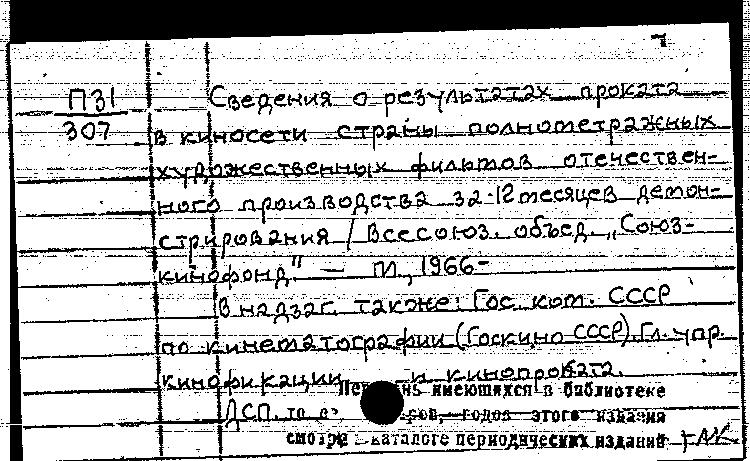 П31
307
Сведения о результатах проката
в киносети страны полнометражных
художественных фильмов отечествен-
ного производства за 12 месяцев демон-
стрирования / Всесоюз. объед. „Союз-
кинофонд" — М., 1966-
В надзаг. также: Гос. ком. СССР
по кинематографии (Госкино СССР). Гл. упр.
кинофикации и кинопроката.
имеющихся в библиотеке
ДСП. годов этого издания
смотри каталоге периодических изданий